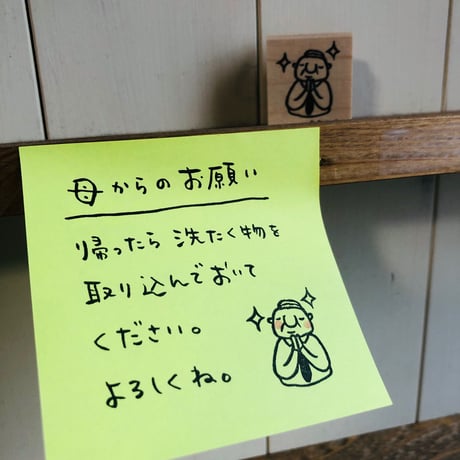 母からのお願い
帰ったら洗たく物を
取り込んでおいて
ください。
よろしくね。